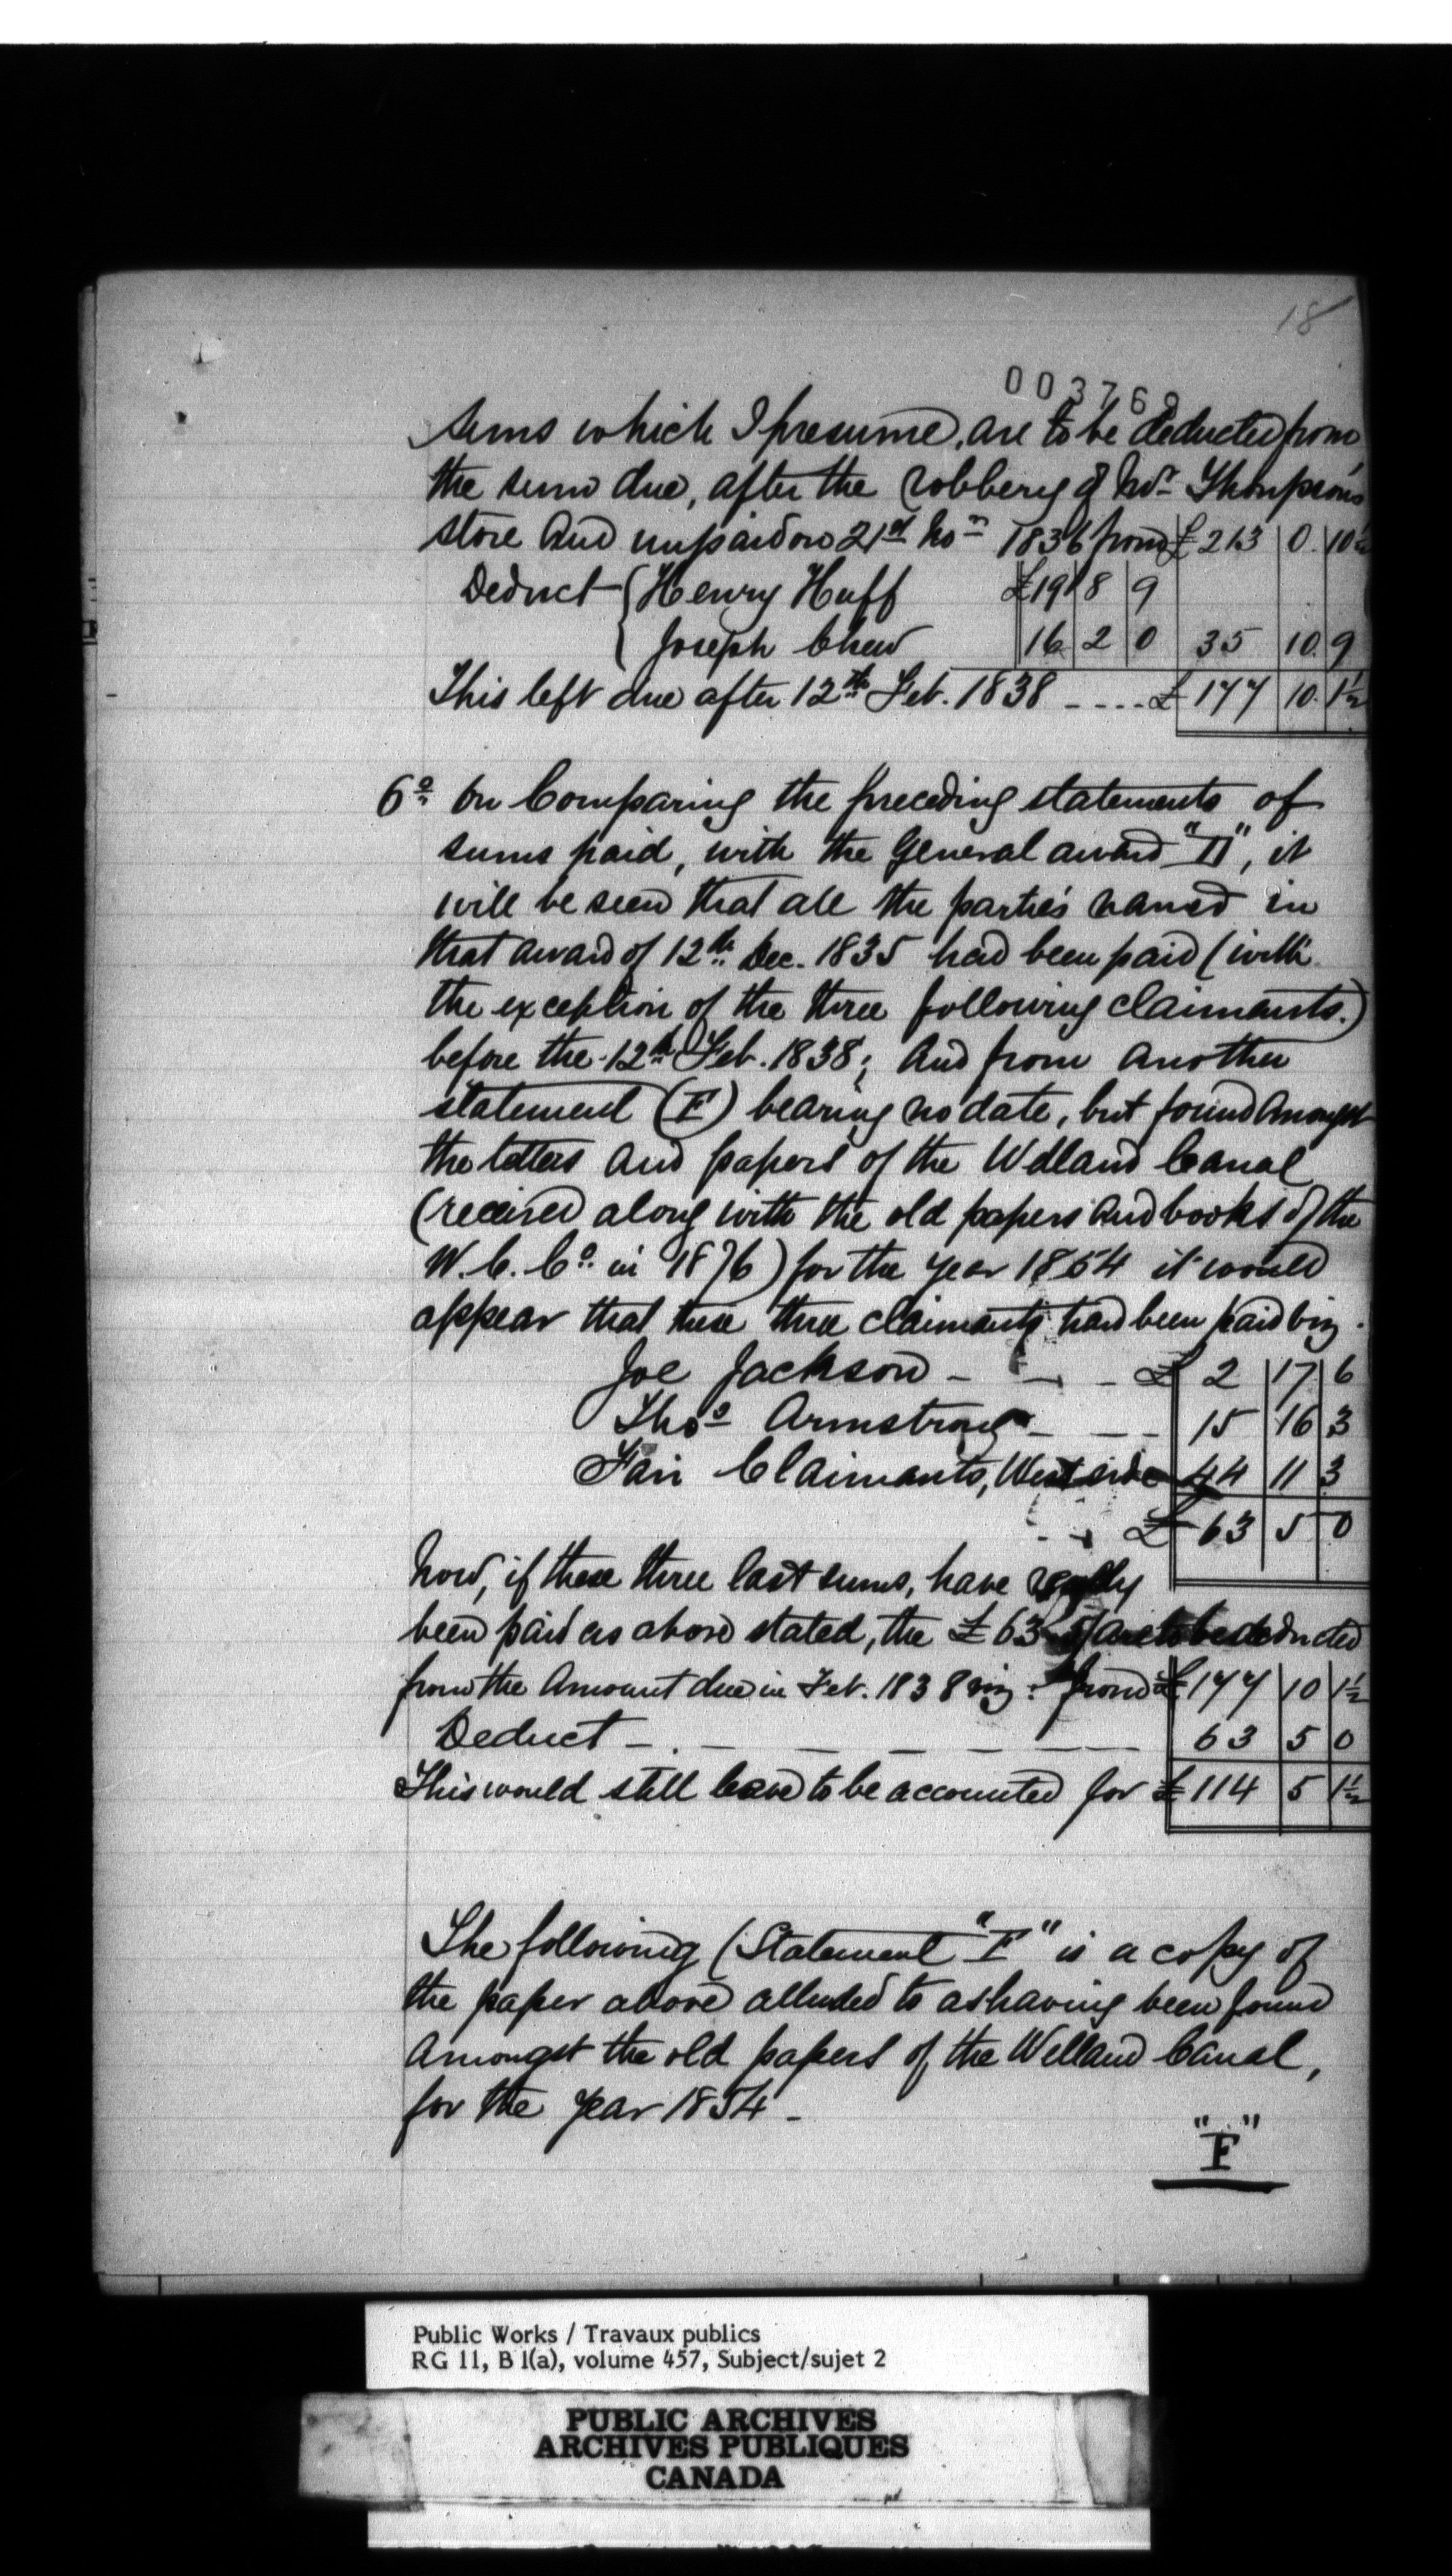 18
003769
sums which I presume, are to be deducted from
the sum due, after the robbery of Mr. Thompson's
store and unpaid on 21st Nov. 1836 from £ 213 | 0. | 10½
Deduct { Henry Huff £19 | 8 | 9
{ Joseph Chew 16 | 2 | 0 35 | 10. | 9
This left due after 12th Feb. 1838 - - - - £ 177 | 10. | 1½
6o. On Comparing the preceding statements of
sums paid, with the General award "D", it
will be seen that all the parties named in
that award of 12th. Dec. 1835 had been paid (with
the exception of the three following claimants.)
before the 12th Feb. 1838; And from another
statement (F) bearing no date, but found amongst
the letters and papers of the Welland Canal
(received along with the old papers and books of the
W. C. Co. in 1876) for the year 1854 it would
appear that these three claimants had been paid viz.
Joe Jackson - - - £ 2 | 17 | 6
Thos Armstrong - - - 15 | 16 | 3
Fair Claimants, West side 44 | 11 | 3
£ 63 | 5 | 0
Now, if these three last sums, have really
been paid as above stated, the £ 63 5/ are to be deducted
from the Amount due in Feb. 1838 viz: from £ 177 | 10 | 1½
Deduct - . - - - - - - 63 | 5 | 0
This would still leave to be accounted for £ 114 | 5 | 1½
The following (Statement "F" is a copy of
the paper above alluded to as having been found
amongst the old papers of the Welland Canal,
for the year 1854 -
"F"
Public Works / Travaux publics
RG 11, B 1(a), volume 457, Subject/sujet 2
PUBLIC ARCHIVES
ARCHIVES PUBLIQUES
CANADA